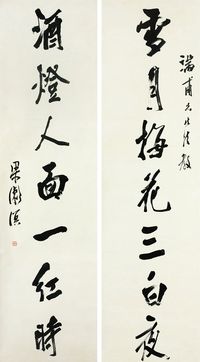 瑞甫先生法教
雪月梅花三白夜
酒燈人面一紅時
梁漱溟